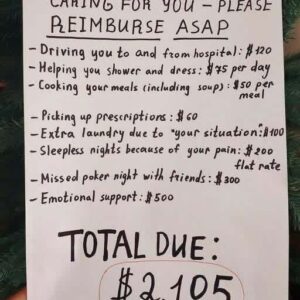 CARING FOR YOU – PLEASE
REIMBURSE ASAP
- Driving you to and from hospital: $120
- Helping you shower and dress: $75 per day
- Cooking your meals (including soup): $50 per
meal
- Picking up prescriptions: $60
- Extra laundry due to "your situation": $100
- Sleepless nights because of your pain: $200
flat rate
- Missed poker night with friends: $300
- Emotional support: $500
TOTAL DUE:
$2,105